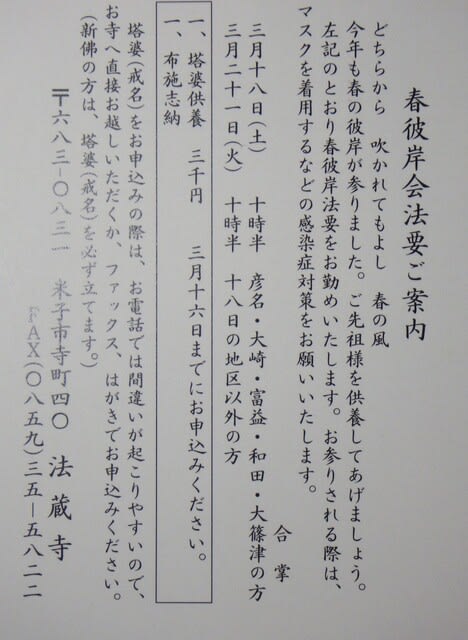 春彼岸会法要ご案内
どちらから　吹かれてもよし　春の風
今年も春の彼岸が参りました。ご先祖様を供養してあげましょう。
左記のとおり春彼岸法要をお勤めいたします。お参りされる際は、
マスクを着用するなどの感染症対策をお願いいたします。
合掌
三月十八日（土）　十時半　彦名・大崎・富益・和田・大篠津の方
三月二十一日（火）　十時半　十八日の地区以外の方
一、塔婆供養　三千円　三月十六日までにお申込みください。
一、布施志納
塔婆（戒名）をお申込みの際は、お電話では間違いが起こりやすいので、
お寺へ直接お越しいただくか、ファックス、はがきでお申込みください。
（新佛の方は、塔婆（戒名）を必ず立てます。）
〒六八三－〇八三一　米子市寺町四〇　法蔵寺
FAX（〇八五九）三五－五八二二